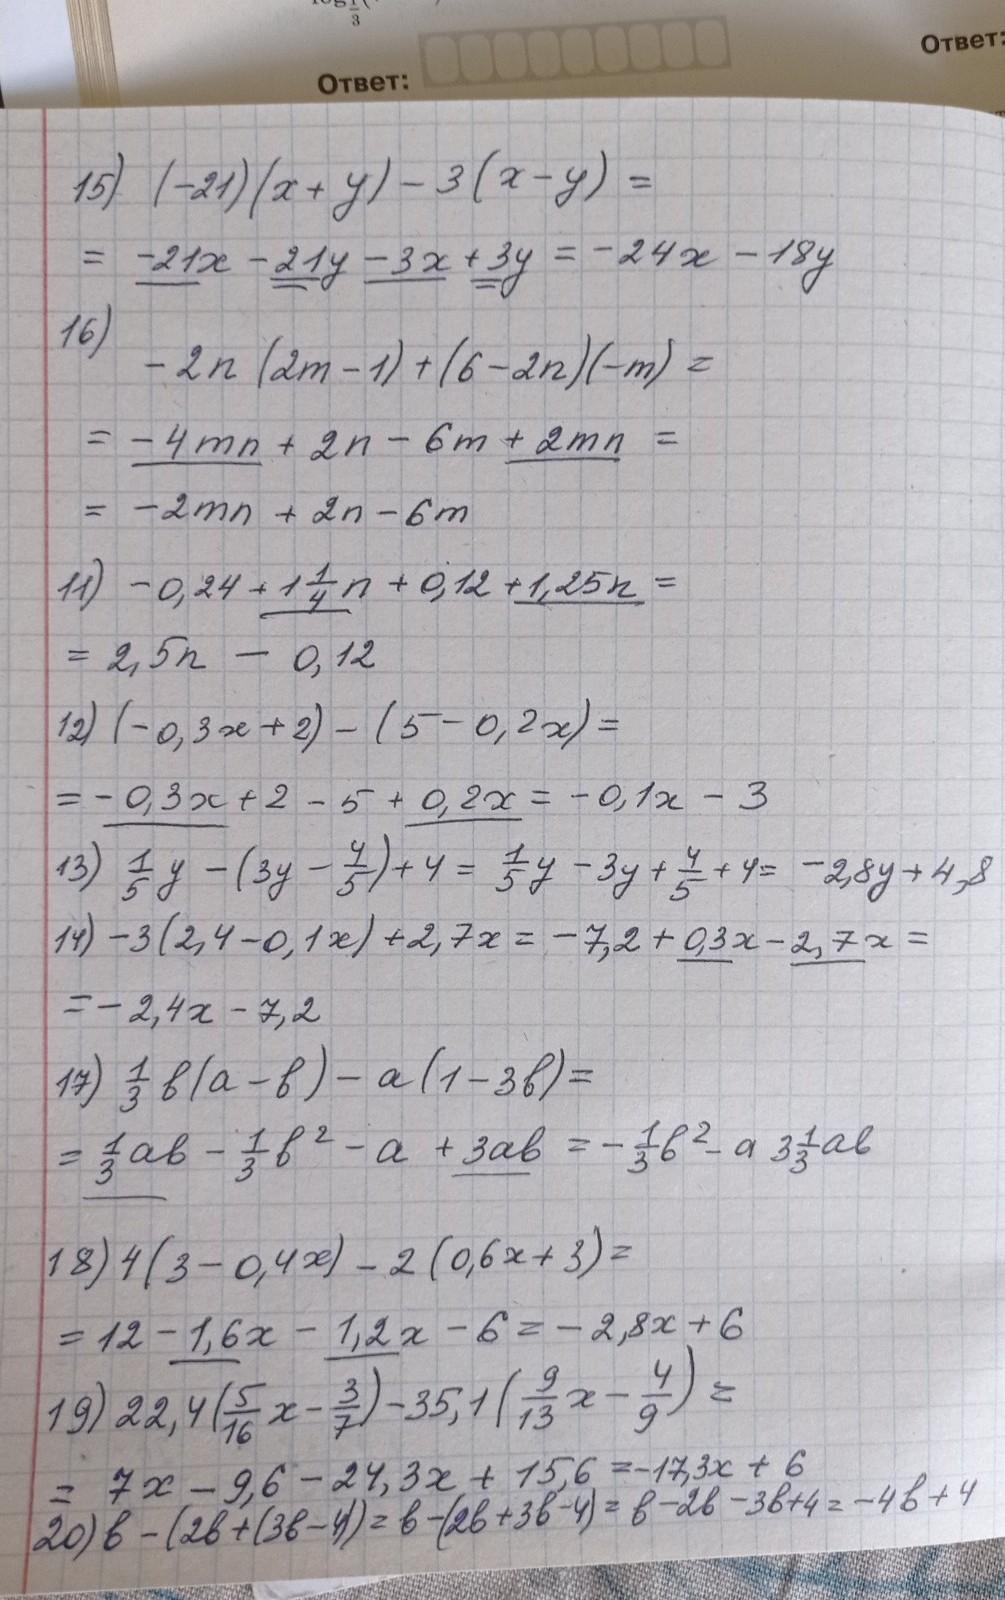 Ответ:
Ответ:
15) (-21)(x + y) - 3(x - y) =
= -21x - 21y - 3x + 3y = -24x - 18y
16)
-2n (2m - 1) + (6 - 2n)(-m) =
= -4mn + 2n - 6m + 2mn =
= -2mn + 2n - 6m
11) -0,24 + 1 1/4 n + 0,12 + 1,25n =
= 2,5n - 0,12
12) (-0,3x + 2) - (5 - 0,2x) =
= -0,3x + 2 - 5 + 0,2x = -0,1x - 3
13) 1/5 y - (3y - 4/5) + 4 = 1/5 y - 3y + 4/5 + 4 = -2,8y + 4,8
14) -3(2,4 - 0,1x) + 2,7x = -7,2 + 0,3x - 2,7x =
= -2,4x - 7,2
17) 1/3 в(а - в) - а(1 - 3в) =
= 1/3 ав - 1/3 в² - а + 3ав = - 1/3 в² - а 3 1/3 ав
18) 4(3 - 0,4x) - 2(0,6x + 3) =
= 12 - 1,6x - 1,2x - 6 = -2,8x + 6
19) 22,4(5/16 x - 3/7) - 35,1(9/13 x - 4/9) =
= 7x - 9,6 - 24,3x + 15,6 = -17,3x + 6
20) в - (2в + (3в - 4)) = в - (2в + 3в - 4) = в - 2в - 3в + 4 = -4в + 4